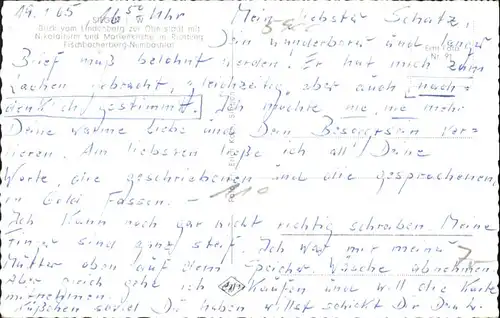 19.1.65 16⁵⁰ Uhr Mein liebster Schatz,
SIEGEN
Blick vom Lindenberg zur Oberstadt mit
Nikolaiturm und Marienkirche
Fischbacherberg-Numbachtal
Dein wunderbarer und langer
Brief muß belohnt werden! Er hat mich zum
Lachen gebracht, gleichzeitig aber auch nach=
denklich gestimmt. Ich möchte nie, nie mehr
Deine warme Liebe und Dein Besorgtsein ver=
lieren. Am liebsten ließe ich all' Deine
Worte, die geschriebenen und die gesprochenen
in Gold fassen. –
Ich kann noch gar nicht richtig schreiben. Meine
Finger sind ganz steif. Ich war mit meiner
Mutter oben auf dem Speicher Wäsche abnehmen.
Aber gleich gehe ich einkaufen und will die Karte
mitnehmen.
Küßchen soviel Du haben willst schickt Dir Deine